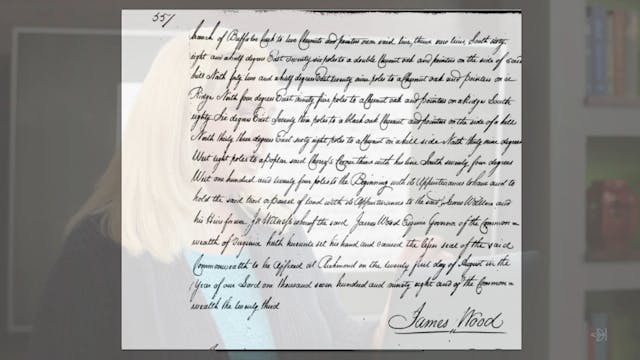 557
branch of Buffaloe Creek to two Chesnuts and pointers near said line, thence new line, South sixty
eight and a half degrees East twenty six poles to a double Chesnut oak and pointers on the side of said
hill North forty two and a half degrees East twenty nine poles to a Chesnut oak and pointers on a
Ridge North four degrees East ninety five poles to a Chesnut oak and pointers on a Ridge South
eighty Six degrees East Seventy two poles to a black oak Chesnut and pointers on the side of a hill
North thirty three degrees East sixty eight poles to a Chesnut on a hill side North thirty nine degrees
West eight poles to a poplar said Cherry's Corner thence with his line South seventy four degrees
West one hundred and twenty four poles to the Beginning with its Appurtenances to have and to
hold the said tract or parcel of land with its Appurtenances to the said James and
his Heirs forever. In Witness whereof the said James Wood Esquire Governor of the Common =
wealth of Virginia hath hereunto set his hand and caused the lesser seal of the said
Commonwealth to be affixed at Richmond on the twenty first day of August in the
year of our Lord one thousand seven hundred and ninety eight and of the Common =
wealth the twenty third
James Wood